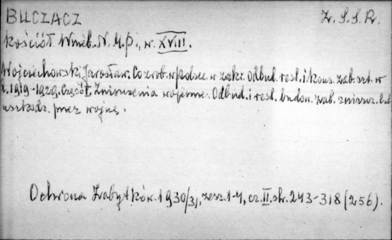 BUCZACZ Z.S.S.R.
Kościół Wnieb. N.M.P., w. XVIII.
Wojciechowski Jarosław. Co zrob. w Polsce w zakr. Odbud. rest. i kons. zab. szt. w
l. 1919-1929. Część I. Zniszczenia wojenne. Odbud. i rest. budow. zab. zniszcz. lub
uszkodz. przez wojnę.
Ochrona Zabytków. 1930/31, zesz. 1-4, cz. II. str. 243-318 (256).